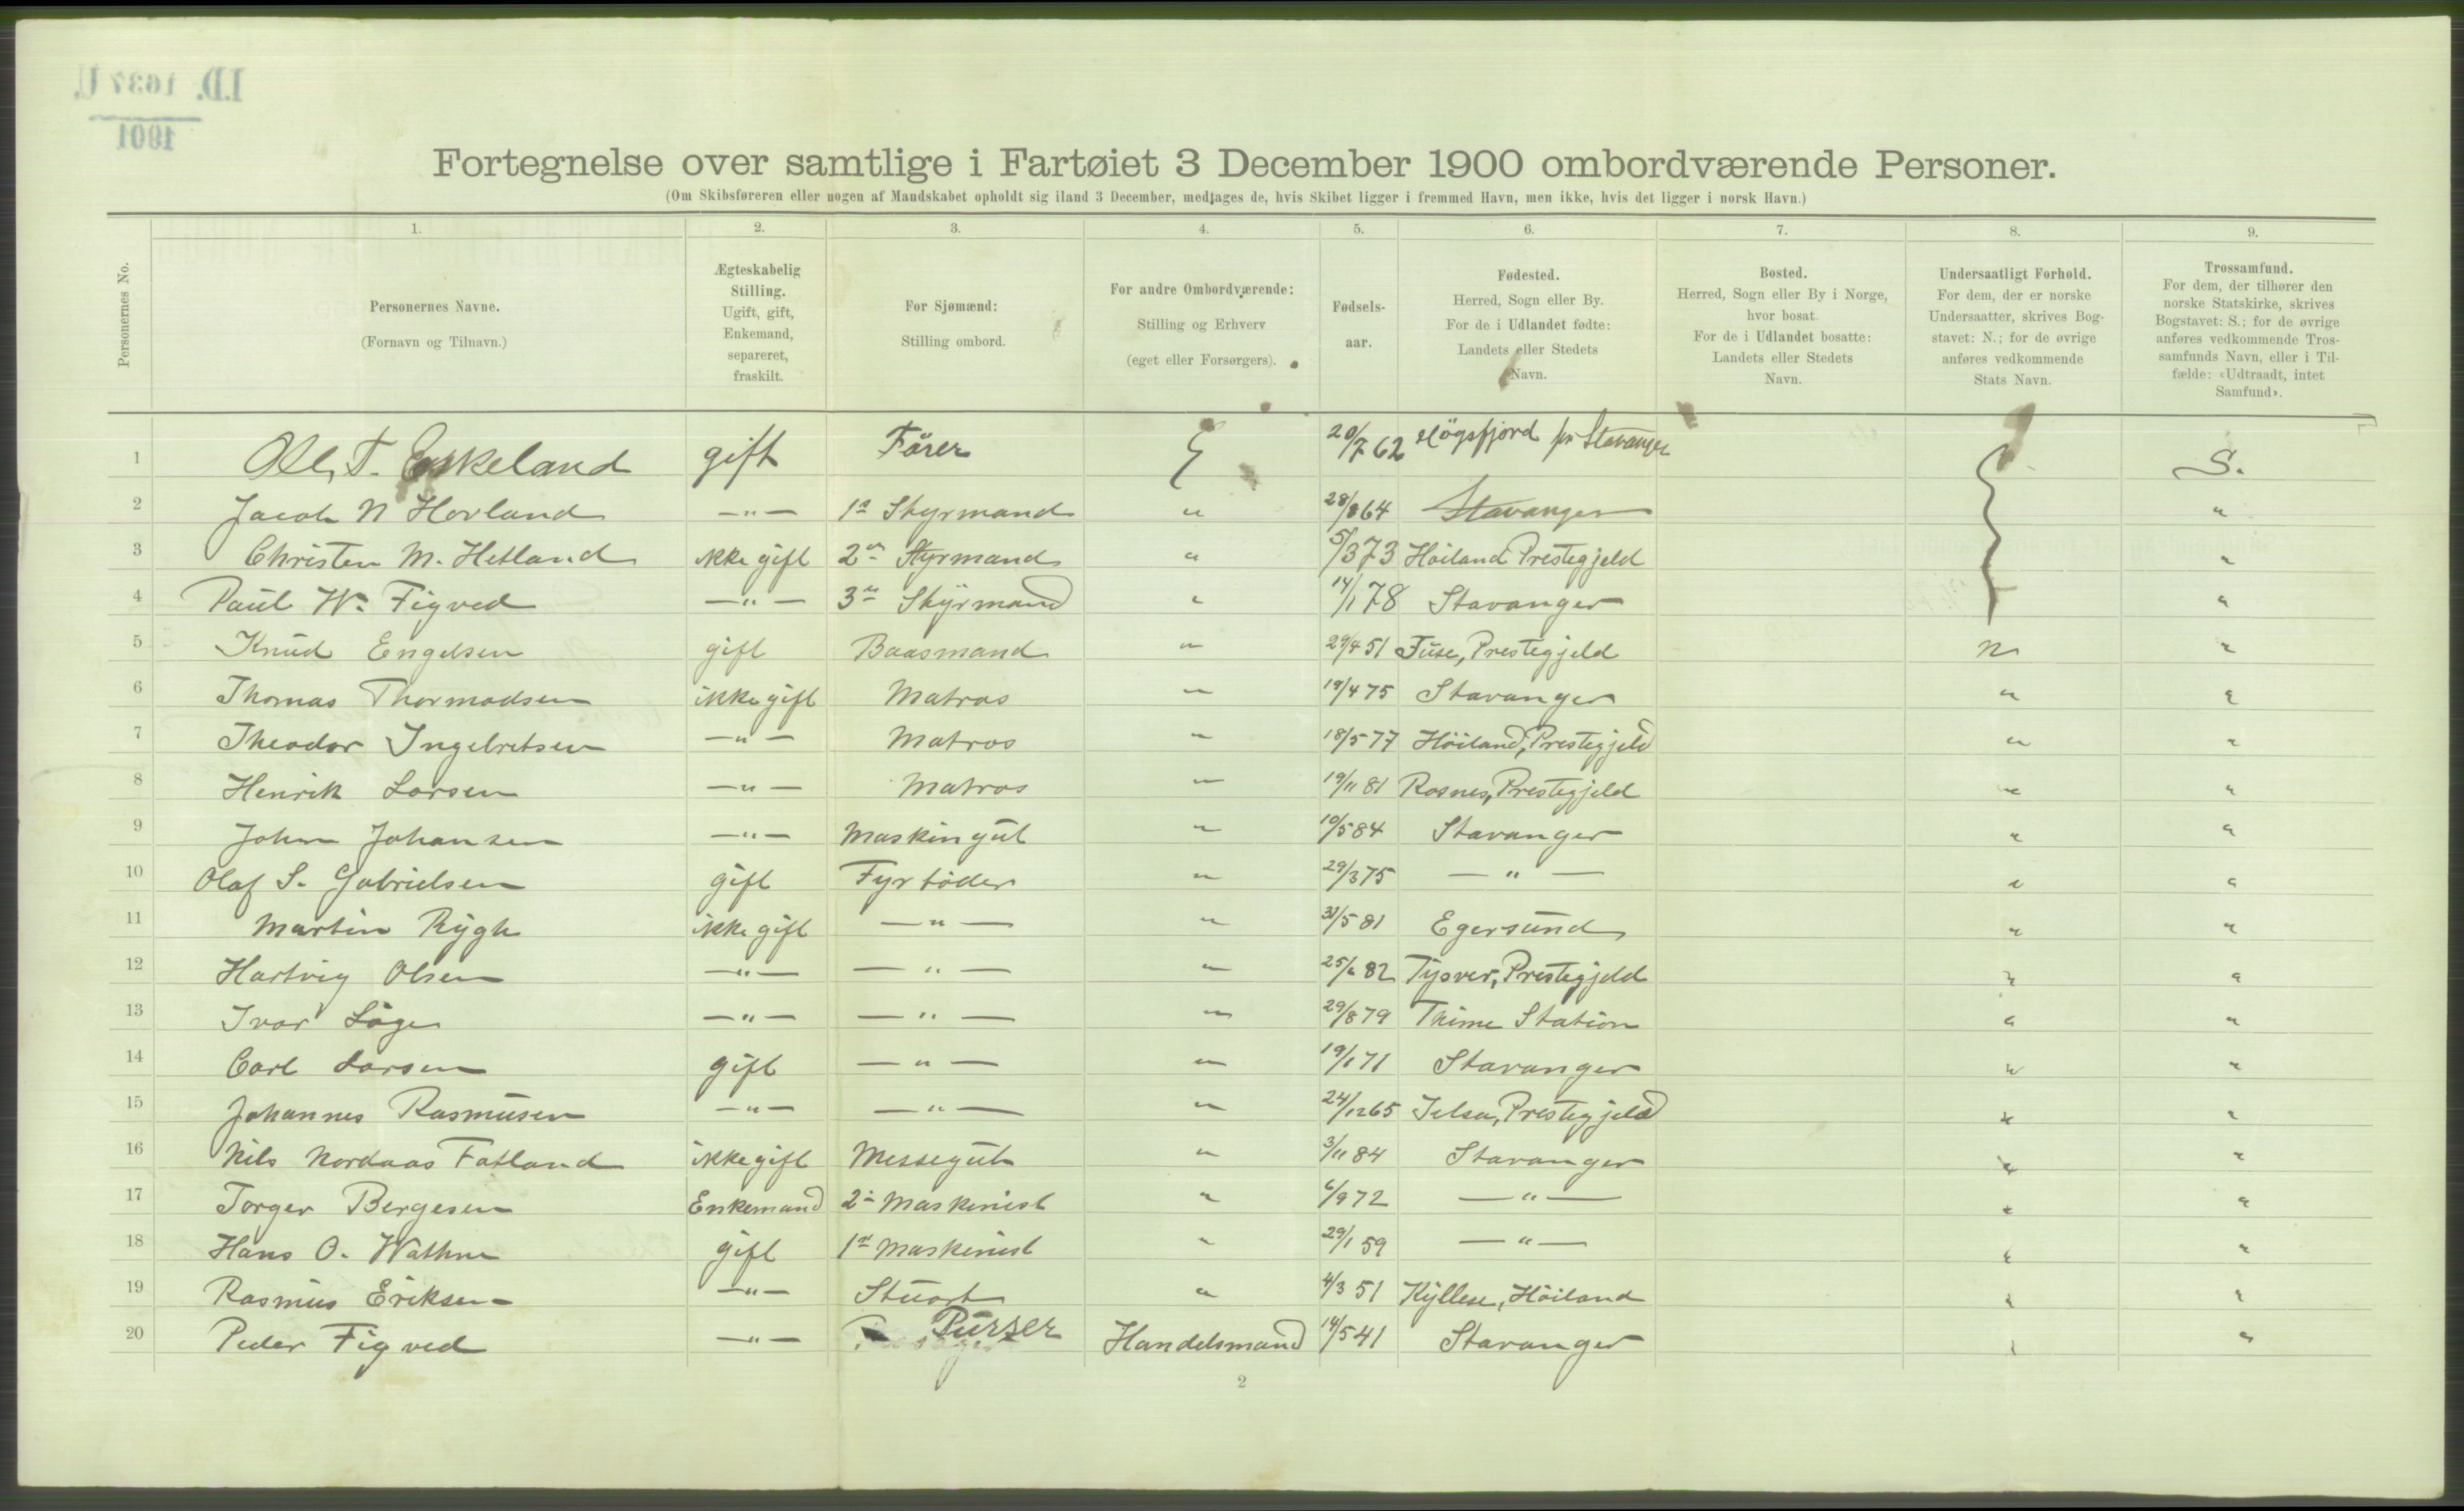 I.D. 1637 U.
1901
Fortegnelse over samtlige i Fartøiet 3 December 1900 ombordværende Personer.
(Om Skibsføreren eller nogen af Mandskabet opholdt sig iland 3 December, medtages de, hvis Skibet ligger i fremmed Havn, men ikke, hvis det ligger i norsk Havn.)
Personernes No.
1. 2. 3. 4. 5. 6. 7. 8. 9.
Personernes Navne.
(Fornavn og Tilnavn.)
Ægteskabelig
Stilling.
Ugift, gift,
Enkemand,
separeret,
fraskilt.
For Sjømænd:
Stilling ombord.
For andre Ombordværende:
Stilling og Erhverv
(eget eller Forsørgers).
Fødsels-
aar.
Fødested.
Herred, Sogn eller By.
For de i Udlandet fødte:
Landets eller Stedets
Navn.
Bosted.
Herred, Sogn eller By i Norge,
hvor bosat.
For de i Udlandet bosatte:
Landets eller Stedets
Navn.
Undersaatligt Forhold.
For dem, der er norske
Undersaatter, skrives Bog-
stavet: N.; for de øvrige
anføres vedkommende
Stats Navn.
Trossamfund.
For dem, der tilhører den
norske Statskirke, skrives
Bogstavet: S.; for de øvrige
anføres vedkommende Tros-
samfunds Navn, eller i Til-
fælde: «Udtraadt, intet
Samfund».
1 Ole T. Eskeland gift Förer 20/7 62 Högsfjord pr Stavanger S.
2 Jacob N Hovland —"— 1ste Styrmand " 28/8 64 Stavanger "
3 Christen M. Hetland ikke gift 2den Styrmand " 5/3 73 Höiland Prestegjeld "
4 Paul W. Figved —"— 3die Styrmand " 14/1 78 Stavanger "
5 Knud Engelsen gift Baasmand " 29/4 51 Fuse, Prestegjeld N "
6 Thomas Thormodsen ikke gift Matros " 19/4 75 Stavanger " "
7 Theodor Ingebretsen —"— Matros " 18/5 77 Höiland, Prestegjeld " "
8 Henrik Larsen —"— Matros " 19/11 81 Rosnes, Prestegjeld " "
9 John Johansen —"— Maskingut " 10/5 84 Stavanger " "
10 Olaf S. Gabrielsen gift Fyrböder " 29/3 75 —"— " "
11 Martin Rygh ikke gift —"— " 31/5 81 Egersund " "
12 Hartvig Olsen —"— —"— " 25/6 82 Tysver, Prestegjeld " "
13 Ivar Löge —"— —"— " 29/8 79 Thime Station " "
14 Carl Larsen gift —"— " 19/1 71 Stavanger " "
15 Johannes Rasmusen —"— —"— " 24/12 65 Jelsa, Prestegjeld " "
16 Nils Nordaas Fatland ikke gift Messegut " 3/11 84 Stavanger " "
17 Torger Bergesen Enkemand 2 Maskinist " 6/9 72 —"— " "
18 Hans O. Wathne gift 1st Maskinist " 29/1 59 —"— " "
19 Rasmus Eriksen —"— Stuart " 4/3 51 Kyllese, Höiland " "
20 Peder Figved —"— Purser Handelsmand 14/5 41 Stavanger " "
2